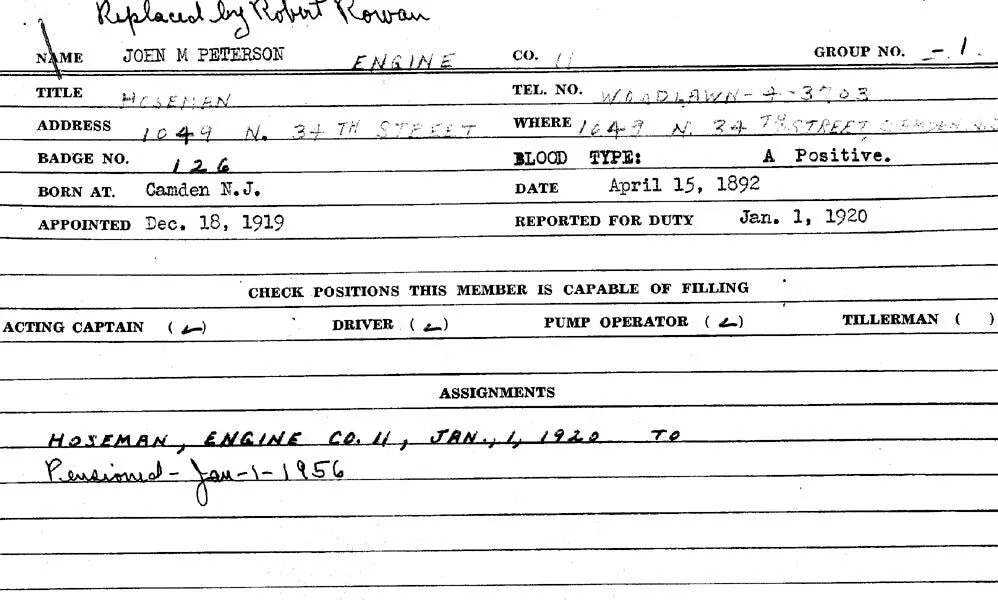 Replaced by Robert Rowan
NAME JOHN M PETERSON ENGINE CO. 11 GROUP NO. - 1.
TITLE HOSEMAN TEL. NO. WOODLAWN-4-3703
ADDRESS 1049 N. 34TH STREET WHERE 1049 N. 34TH STREET, CAMDEN NJ
BADGE NO. 126 BLOOD TYPE: A Positive.
BORN AT. Camden N.J. DATE April 15, 1892
APPOINTED Dec. 18, 1919 REPORTED FOR DUTY Jan. 1, 1920
CHECK POSITIONS THIS MEMBER IS CAPABLE OF FILLING
ACTING CAPTAIN (✓) DRIVER (✓) PUMP OPERATOR (✓) TILLERMAN ( )
ASSIGNMENTS
HOSEMAN, ENGINE CO. 11, JAN., 1, 1920 TO
Pensioned - Jan-1-1956